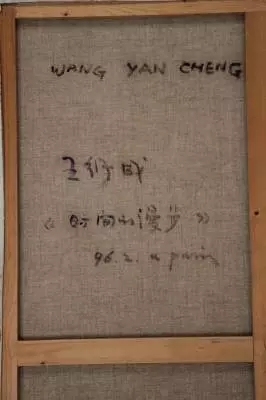 WANG YAN CHENG
王衍成
《时间的漫步》
96.2. a paris